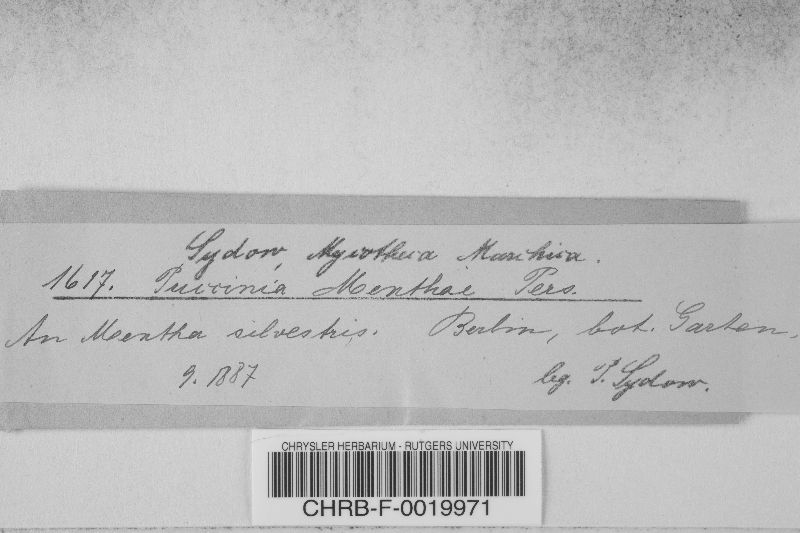 Sydow, Mycotheca Marchica.
1617. Puccinia Menthae Pers.
An Mentha silvestris. Berlin, bot. Garten.
9. 1887
leg. P. Sydow.
CHRYSLER HERBARIUM - RUTGERS UNIVERSITY
CHRB-F-0019971